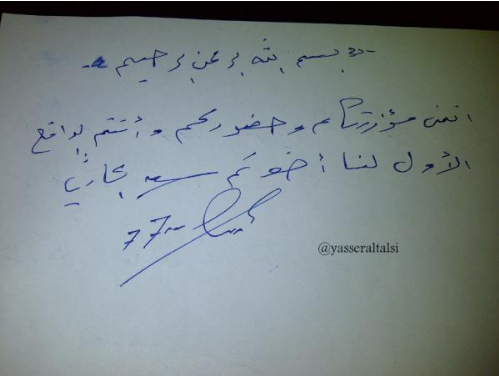 بسم الله الرحمن الرحيم
اتمنى مؤزرتكم وحضوركم وأنتم لدافع
الأول لنا أخوكم سعد الحارثي
@yasseraltalsi